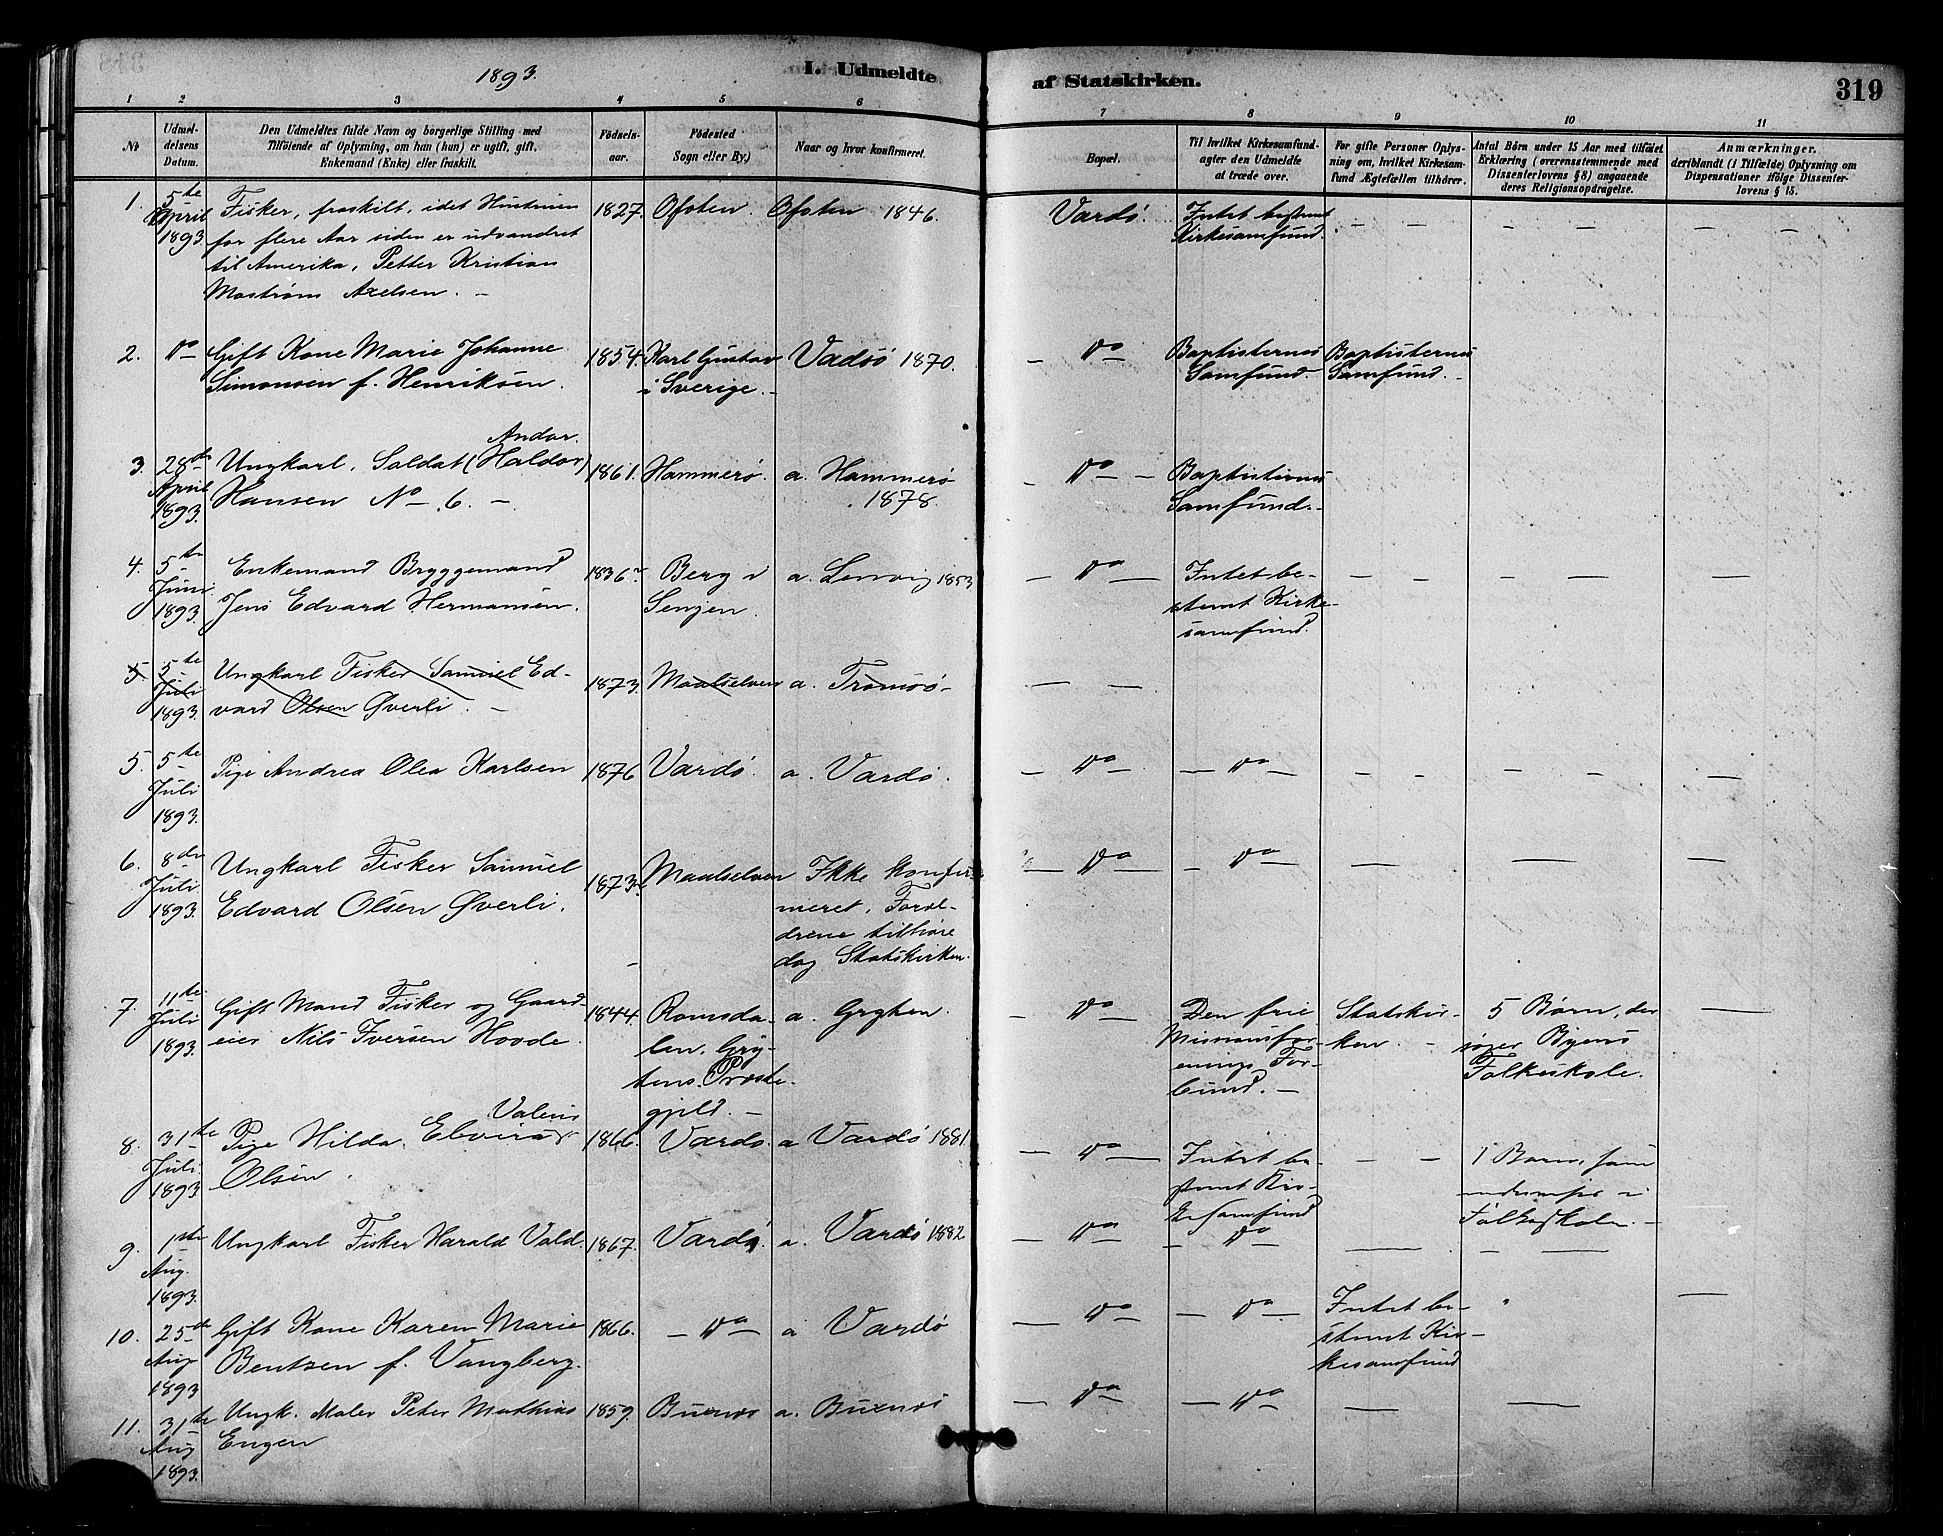 1893.
I. Udmeldte af Statskirken.
319
1 2 3 4 5 6 7 8 9 10 11
No
Udmel-
delsens
Datum.
Den Udmeldtes fulde Navn og borgerlige Stilling med
Tilføiende af Oplysning, om han (hun) er ugift, gift,
Enkemand (Enke) eller fraskilt.
Fødsels-
aar.
Fødested
Sogn eller By.)
Naar og hvor konfirmeret.
Bopæl.
Til hvilket Kirkesamfund
agter den Udmeldte
at træde over.
For gifte Personer Oplys-
ning om, hvilket Kirkesam-
fund Ægtefællen tilhører.
Antal Børn under 15 Aar med tilføiet
Erklæring (overensstemmende med
Dissenterlovens § 8) angaaende
deres Religionsopdragelse.
Anmærkninger,
deriblandt (i Tilfælde) Oplysning om
Dispensationer ifølge Dissenter-
lovens § 15.
1.
5te
April
1893
Fisker, fraskilt, idet Hustruen
for flere Aar siden er udvandret
til Amerika, Petter Kristian
Mostrøm Axelsen. -
1827.
Ofoten.
Ofoten 1846.
Vardö.
Intet bestemt
Kirkesamfund.
— —
— —
— —
2.
Do
Gift Kone Marie Johanne
Simonsen f. Henriksen.
1854.
Karl Gustav
i Sverige. -
Vadsö 1870.
— Do —
Baptisternes
Samfund.
Baptisternes
Samfund. -
3.
28de
April
1893.
Andor.
Ungkarl, Soldat (Haldor)
Hansen No - 6. -
1861.
Hammerö.
a. Hammerö
1878.
— Do —
Baptisternes
Samfund. -
4.
5te
Juni
1893.
Enkemand Bryggemand
Jens Edvard Hermansen.
1836
Berg i
Senjen.
a. Lenvig 1853
— Do —
Intet be-
stemt Kirke-
samfund.
— —
— —
— —
5.
5te
Juli
1893.
Ungkarl Fisker Samuel Ed-
vard Olsen Øverli. -
1873.
Maalselven
a. Tromsö -
— —
5.
5te
Juli
1893.
Pige Andrea Olea Karlsen
1876
Vardö.
a. Vardö.
— Do —
— Do —
— —
— —
—
6.
8de
Juli
1893.
Ungkarl Fisker Samuel
Edvard Olsen Øverli.
1873.
Maalselven
Ikke konfir-
meret, Foræl-
drene tilhøre
dog Statskirken.
— Do —
— Do —
—
—
—
7.
11te
Juli
1893.
Gift Mand Fisker og Gaard-
eier Nils Iversen Hovde.
1844.
Romsda-
len, Gry-
tens Præste-
gjeld. -
a. Gryten.
— Do —
Den frie
Missionsfor-
enings For-
bund. -
Statskir-
ken. -
5 Børn, der
søger Byens
Folkeskole.
—
8.
31te
Juli
1893
Valeria
Pige Hilda Elvira
Olsen.
1866.
Vardö.
a Vardö 1881.
— Do —
Intet be-
stemt Kir-
kesamfund
— —
1 Barn, som
undervises i
Folkeskolen. -
9.
1ste
Aug.
1893.
Ungkarl Fisker Harald Vold.
1867.
Vardö.
a. Vardö 1882
— Do —
— Do —
—
—
—
10.
25de
Aug
1893
Gift Kone Karen Marie
Bentzen f. Vangberg.
1866.
— Do —
a Vardö
— Do —
— Do —
Intet be-
stemt Kir-
kesamfund
11.
31te
Aug
1893.
Ungk. Maler Peter Mathias
Engen
1859.
Buxnæs
a. Buxnæs
— Do —
— Do —
—
—